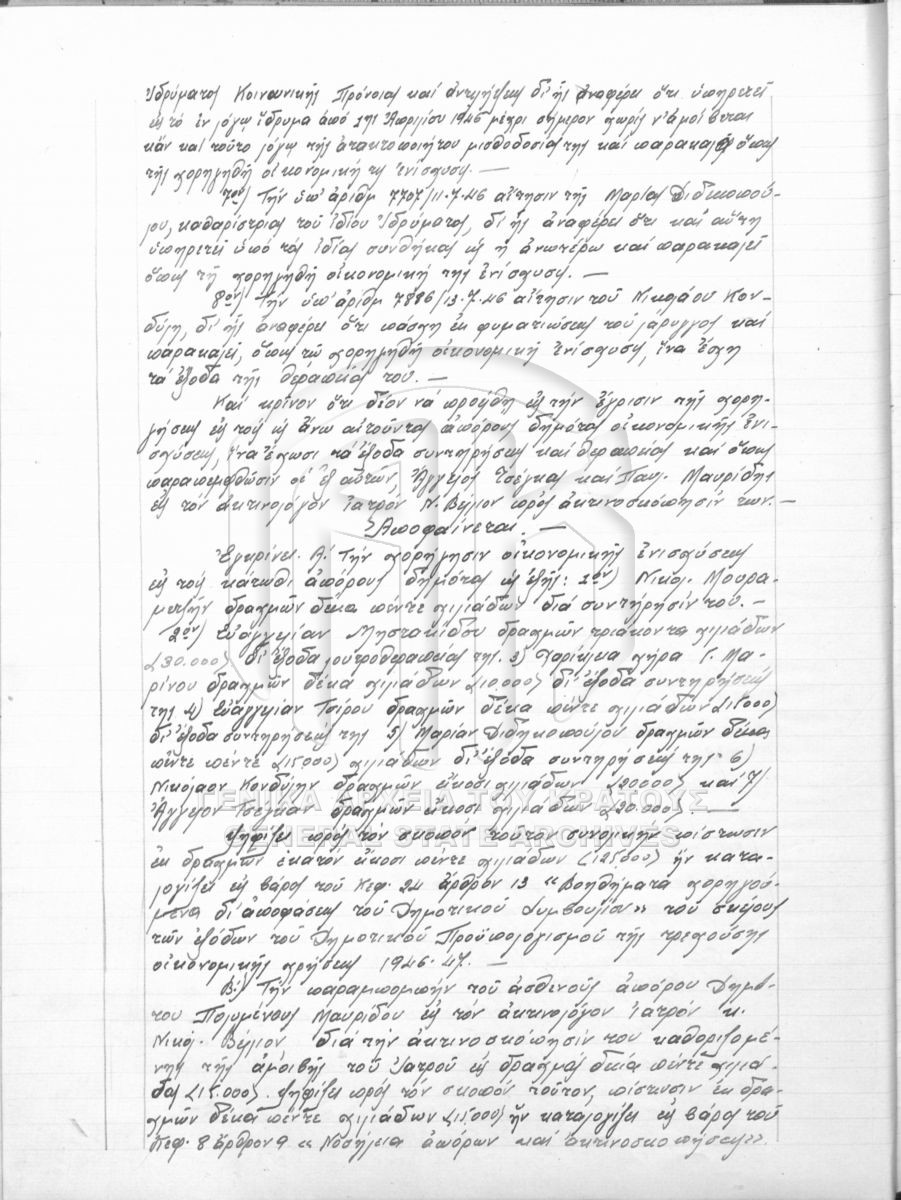 Ἱδρύματος Κοινωνικῆς Προνοίας καί Ἀντιλήψεως δι' ἧς ἀναφέρει ὅτι ὑπηρετεῖ
εἰς τό ἐν λόγῳ ἵδρυμα ἀπό 1ης Ἀπριλίου 1946 μέχρι σήμερον χωρίς ν' ἀμείβεται
κἄν καί τοῦτο λόγῳ τῆς ἀτακτοποιήτου μισθοδοσίας της καί παρακαλεῖ ὅπως
τῆς χορηγηθῇ οἰκονομική τις ἐνίσχυσις. —
7ον) Τήν ὑπ' ἀριθμ 7707/11.7.46 αἴτησιν τῆς Μαρίας Διδικοπού-
λου, καθαριστρίας τοῦ ἰδίου Ἱδρύματος, δι' ἧς ἀναφέρει ὅτι καί αὕτη
ὑπηρετεῖ ὑπό τάς ἰδίας συνθήκας ὡς ἡ ἀνωτέρω καί παρακαλεῖ
ὅπως τῇ χορηγηθῇ οἰκονομική της ἐνίσχυσις. —
8ον) Τήν ὑπ' ἀριθμ 7886/13.7.46 αἴτησιν τοῦ Νικολάου Κον-
δύλη, δι' ἧς ἀναφέρει ὅτι πάσχει ἐκ φυματιώσεως τοῦ λάρυγγος καί
παρακαλεῖ, ὅπως τῷ χορηγηθῇ οἰκονομική ἐνίσχυσις, ἵνα ἔχῃ
τά ἔξοδα τῆς θεραπείας του. —
Καί κρῖνον ὅτι δέον νά προέλθῃ εἰς τήν ἔγκρισιν τῆς χορη-
γήσεως εἰς τούς ὡς ἄνω αἰτοῦντας ἀπόρους δημότας οἰκονομικῆς ἐνι-
σχύσεως, ἵνα ἔχωσι τά ἔξοδα συντηρήσεως καί θεραπείας καί ὅπως
παραπεμφθῶσιν οἱ ἐξ αὐτῶν, Ἄγγελος Τσέγκας καί Παυλ. Μαυρίδης
εἰς τόν ἀκτινολόγον Ἰατρόν Ν. Βέλιον πρός ἀκτινοσκόπησίν των. —
Ἀποφαίνεται. —
Ἐγκρίνει Α'. Τήν χορήγησιν οἰκονομικῆς ἐνισχύσεως
εἰς τούς κάτωθι ἀπόρους δημότας ὡς ἑξῆς: 1ον) Νικολ. Μουρα-
δραχμῶν δέκα πέντε χιλιάδων διά συντήρησίν του. —
2ον) Εὐαγγελίαν Μηστακίδου δραχμῶν τριάκοντα χιλιάδων
(30.000) δι' ἔξοδα λουτροθεραπείας της. 3) Χαρίκλεια χήρα Γ. Μα-
ρίνου δραχμῶν δέκα χιλιάδων (10000) δι' ἔξοδα συντηρήσεώς
της 4) Εὐαγγελίαν Τσίρου δραχμῶν δέκα πέντε χιλιάδων (15000)
δι' ἔξοδα συντηρήσεώς της 5) Μαρίαν Διδικοπούλου δραχμῶν δέκα
πέντε πέντε (15000) χιλιάδων δι' ἔξοδα συντηρήσεώς της 6)
Νικόλαον Κονδύλην δραχμῶν εἴκοσι χιλιάδων (20000) καί 7)
Ἄγγελον Τσέγκαν δραχμῶν εἴκοσι χιλιάδων (20.000). —
ΓΕΝΙΚΑ ΑΡΧΕΙΑ ΤΟΥ ΚΡΑΤΟΥΣ
GENERAL STATE ARCHIVES
Ψηφίζει πρός τόν σκοπόν τοῦτον συνολικήν πίστωσιν
ἐκ δραχμῶν ἑκατόν εἴκοσι πέντε χιλιάδων (125000) ἥν κατα-
λογίζει εἰς βάρος τοῦ Κεφ. 24 ἄρθρον 13 «Βοηθήματα χορηγού-
μενα δι' ἀποφάσεως τοῦ Δημοτικοῦ Συμβουλίου» τοῦ σκέλους
τῶν ἐξόδων τοῦ Δημοτικοῦ Προϋπολογισμοῦ τῆς τρεχούσης
οἰκονομικῆς χρήσεως 1946-47. —
Β') Τήν παραπομπήν τοῦ ἀσθενοῦς ἀπόρου Δημό-
του Μαυρίδου εἰς τόν ἀκτινολόγον Ἰατρόν κ.
Νικόλ. Βέλιον διά τήν ἀκτινοσκόπησίν του καθοριζομέ-
νης τῆς ἀμοιβῆς τοῦ Ἰατροῦ εἰς δραχμάς δέκα πέντε χιλιά-
δας (15.000). Ψηφίζει πρός τόν σκοπόν τοῦτον, πίστωσιν ἐκ δρα-
χμῶν δέκα πέντε χιλιάδων (15000) ἥν καταλογίζει εἰς βάρος τοῦ
Κεφ. 8 ἄρθρον 9 «Νοσήλεια ἀπόρων καί ἀκτινοσκοπήσεις».